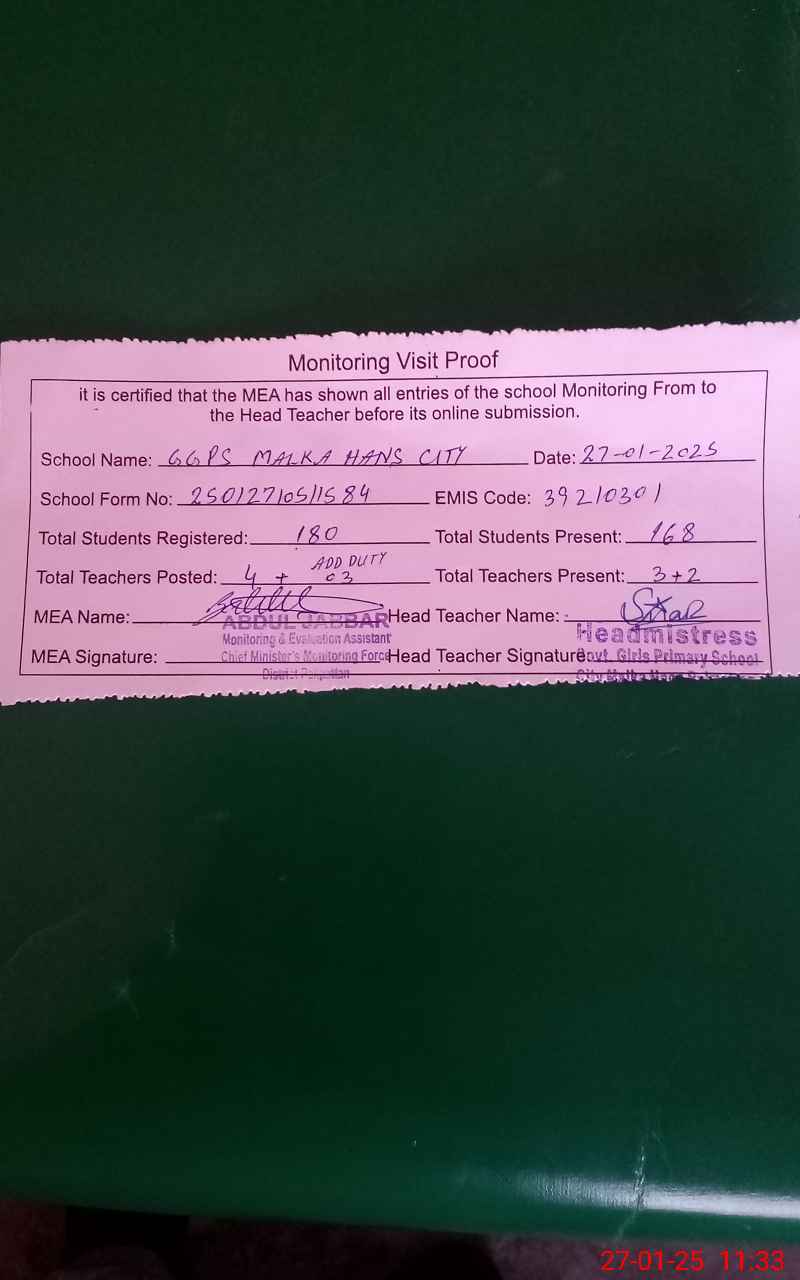 Monitoring Visit Proof
it is certified that the MEA has shown all entries of the school Monitoring From to
the Head Teacher before its online submission.
School Name: GGPS MALKA HANS CITY Date: 27-01-2025
School Form No: 25012710511584 EMIS Code: 39210301
Total Students Registered: 180 Total Students Present: 168
ADD DUTY
Total Teachers Posted: 4 + 03 Total Teachers Present: 3+2
MEA Name: Head Teacher Name:
ABDUL JABBAR Headmistress
Monitoring & Evaluation Assistant
MEA Signature: Chief Minister's Monitoring Force Head Teacher Signature Govt. Girls Primary School
District Pakpattan City Malka Hans
27-01-25 11:33